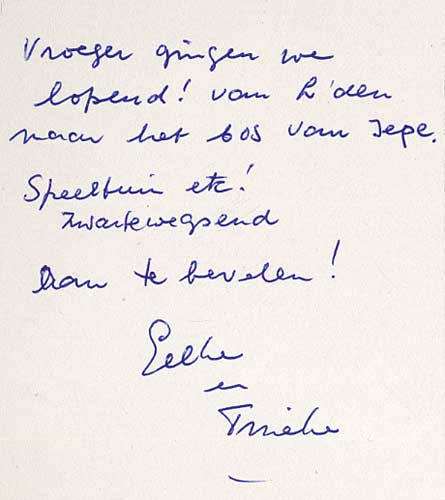 Vroeger gingen we
lopend! van L'den
naar het bos van Jepe.
Speeltuin etc!
Zwartewegsend
Aan te bevelen!
Eelke
en
Trieke